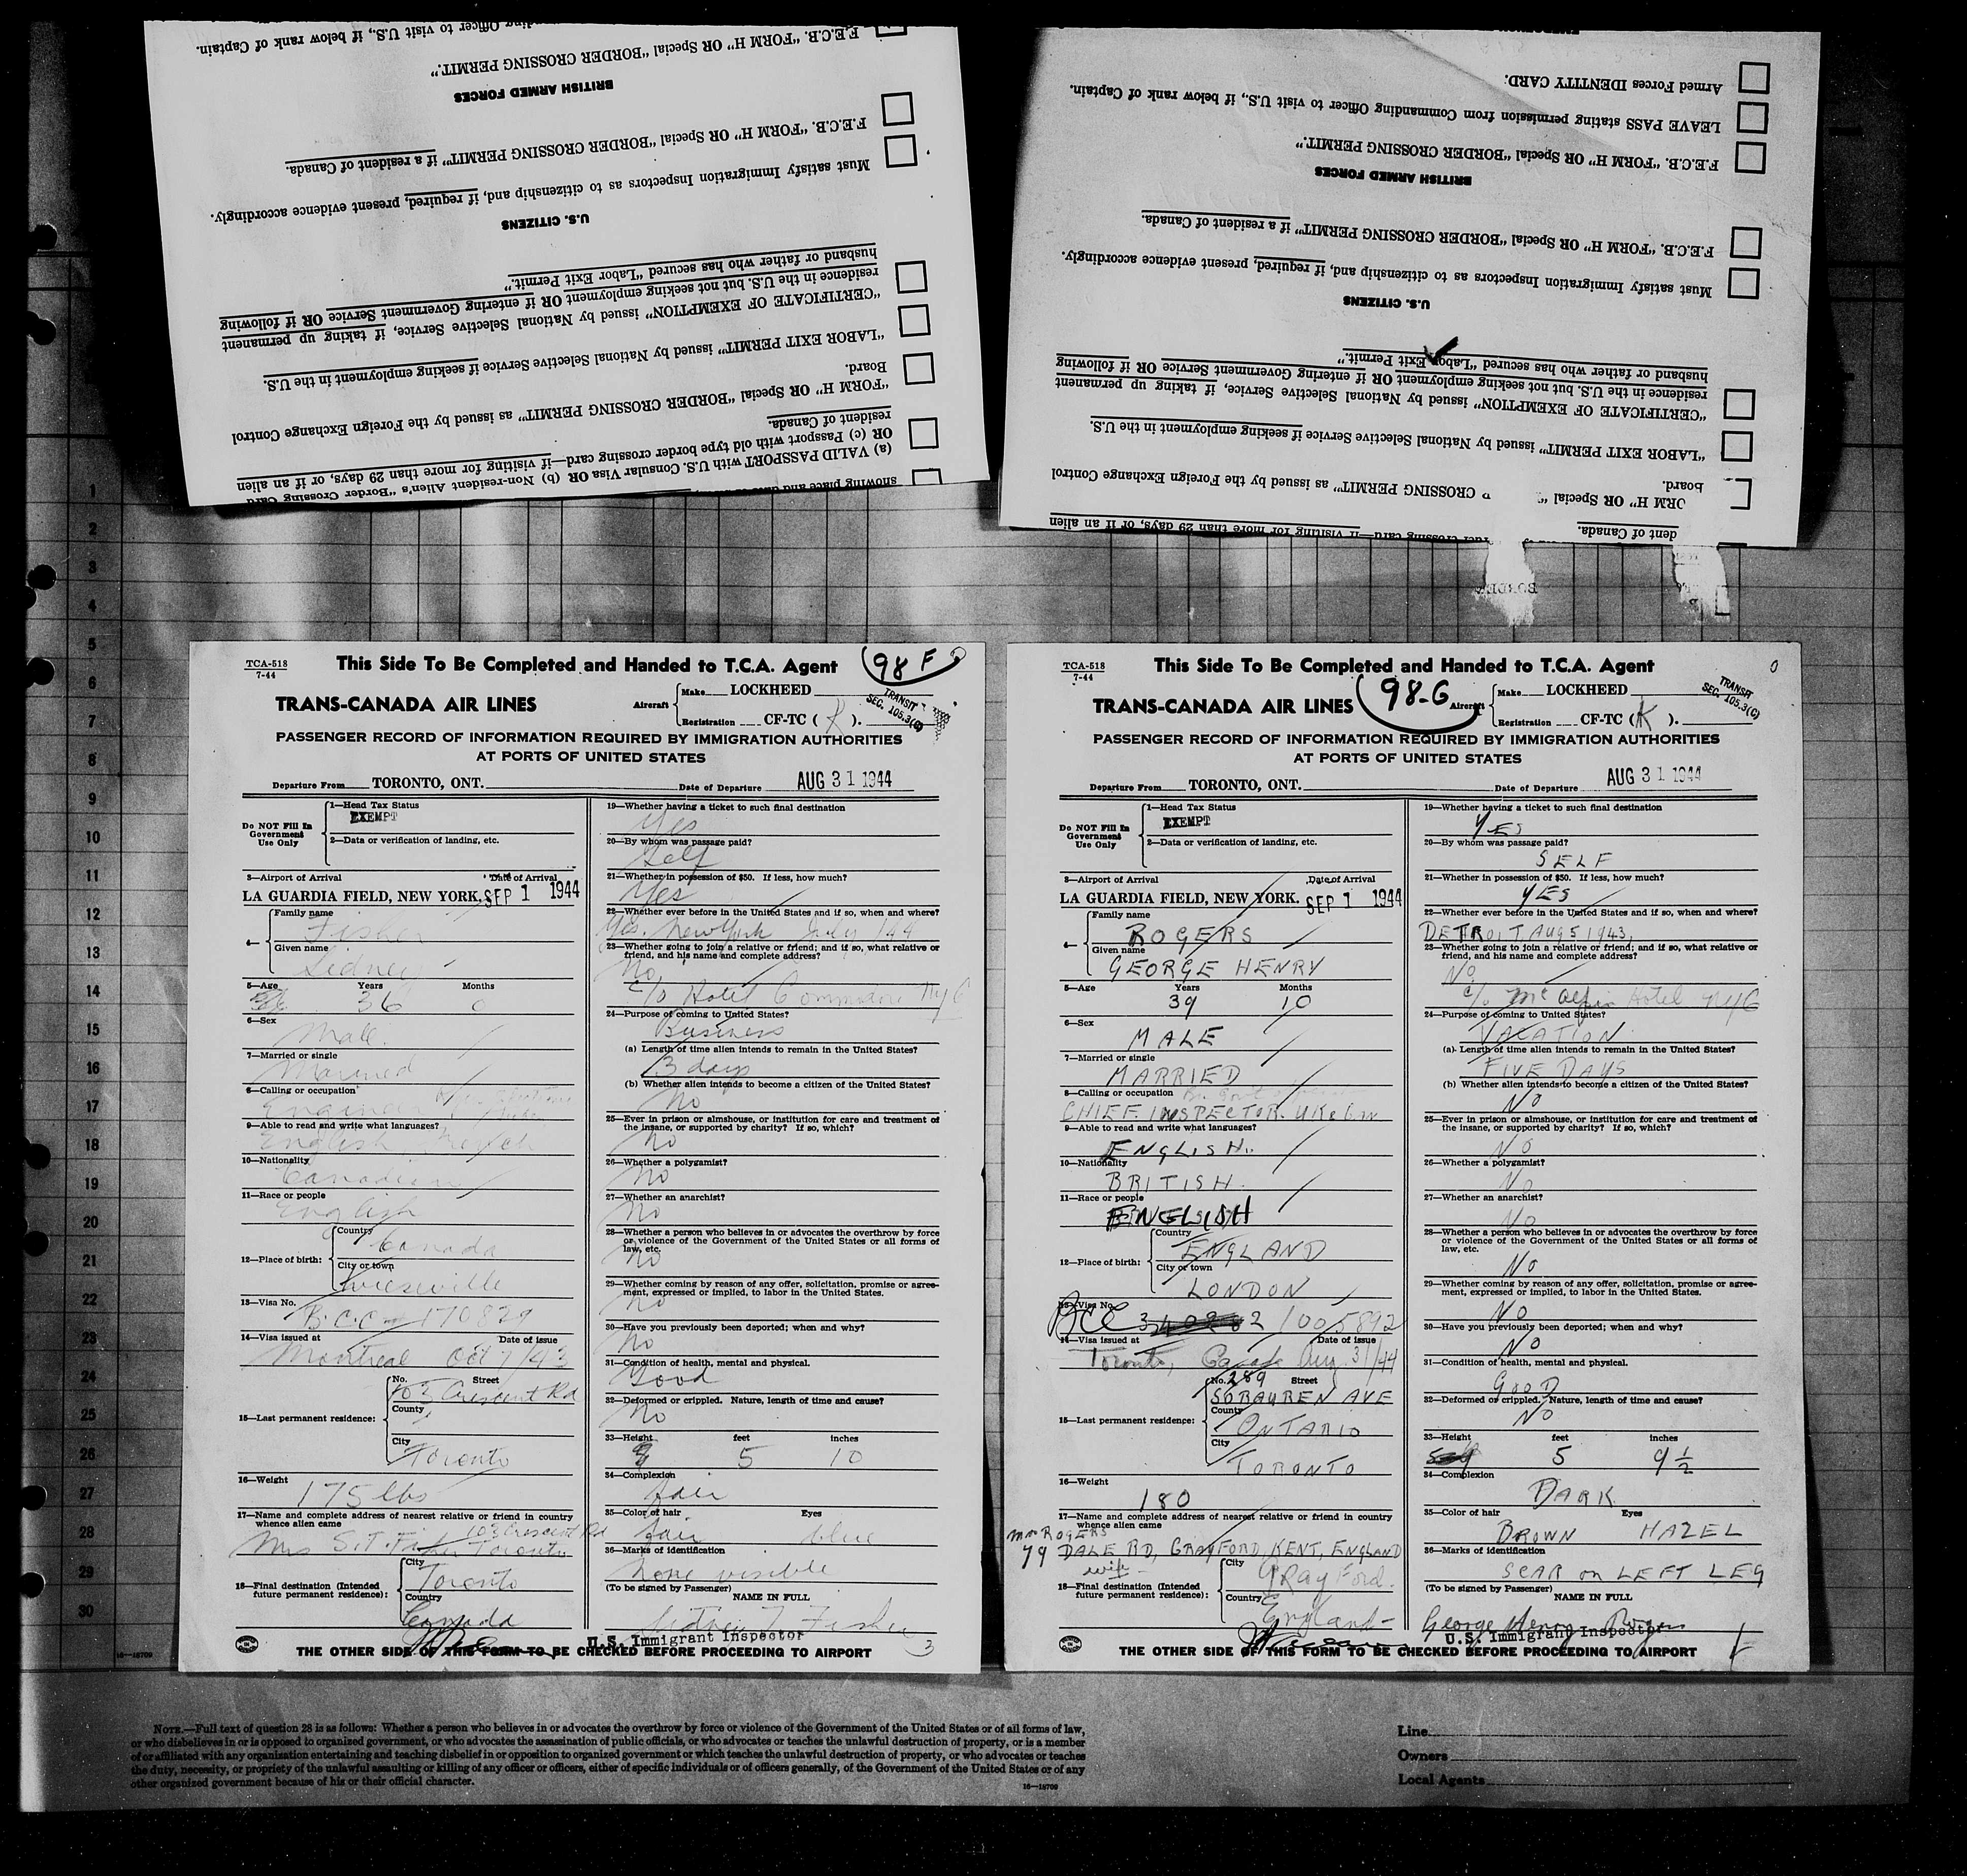 ding Officer to visit U.S., if below rank of Captain.
F.E.C.B. "FORM H" OR Special "BORDER CROSSING PERMIT."
BRITISH ARMED FORCES
F.E.C.B. "FORM H" OR Special "BORDER CROSSING PERMIT" if a resident of Canada.
Must satisfy Immigration Inspectors as to citizenship and, if required, present evidence accordingly.
U.S. CITIZENS
husband or father who has secured "Labor Exit Permit."
residence in the U.S. but not seeking employment OR if entering Government Service OR if following
"CERTIFICATE OF EXEMPTION" issued by National Selective Service, if taking up permanent
"LABOR EXIT PERMIT" issued by National Selective Service if seeking employment in the U.S.
Board.
"FORM H" OR Special "BORDER CROSSING PERMIT" as issued by the Foreign Exchange Control
resident of Canada.
OR (c) Passport with old type border crossing card—if visiting for more than 29 days, or if an alien
(a) VALID PASSPORT with U.S. Consular Visa OR (b) Non-resident Alien's "Border Crossing Card
showing place and date
Armed Forces IDENTITY CARD.
LEAVE PASS stating permission from Commanding Officer to visit U.S., if below rank of Captain.
F.E.C.B. "FORM H" OR Special "BORDER CROSSING PERMIT."
BRITISH ARMED FORCES
F.E.C.B. "FORM H" OR Special "BORDER CROSSING PERMIT" if a resident of Canada.
Must satisfy Immigration Inspectors as to citizenship and, if required, present evidence accordingly.
U.S. CITIZENS
husband or father who has secured "Labor Exit Permit."
residence in the U.S. but not seeking employment OR if entering Government Service OR if following
"CERTIFICATE OF EXEMPTION" issued by National Selective Service, if taking up permanent
"LABOR EXIT PERMIT" issued by National Selective Service if seeking employment in the U.S.
Board.
ORM H" OR Special " CROSSING PERMIT" as issued by the Foreign Exchange Control
dent of Canada.
crossing card—if visiting for more than 29 days, or if an alien
1
2
3
4
5
6
7
8
9
10
11
12
13
14
15
16
17
18
19
20
21
22
23
24
25
26
27
28
29
30
TCA-518
7-44
This Side To Be Completed and Handed to T.C.A. Agent
98 F
TRANS-CANADA AIR LINES
Aircraft
Make LOCKHEED
Registration CF-TC ( K ).
TRANSIT
SEC. 105.3(C)
PASSENGER RECORD OF INFORMATION REQUIRED BY IMMIGRATION AUTHORITIES
AT PORTS OF UNITED STATES
Departure From TORONTO, ONT. Date of Departure AUG 31 1944
Do NOT Fill In Government Use Only
1—Head Tax Status
EXEMPT
2—Data or verification of landing, etc.
3—Airport of Arrival Date of Arrival
LA GUARDIA FIELD, NEW YORK. SEP 1 1944
4—
Family name
Fisher
Given name
Sidney
5—Age Years Months
36 0
6—Sex
Male.
7—Married or single
Married
8—Calling or occupation
Engineer
9—Able to read and write what languages?
English French
10—Nationality
Canadian
11—Race or people
English
12—Place of birth:
Country
Canada
City or town
13—Visa No.
B.C.C. 170829
14—Visa issued at Date of issue
Montreal Oct 7/43
15—Last permanent residence:
No. Street
103 Crescent Rd
County
City
Toronto
16—Weight
175 lbs
17—Name and complete address of nearest relative or friend in country whence alien came
103 Crescent Rd
Mrs S.T. Fisher Toronto
18—Final destination (Intended future permanent residence):
City
Toronto
Country
Canada
19—Whether having a ticket to such final destination
Yes
20—By whom was passage paid?
Self
21—Whether in possession of $50. If less, how much?
Yes
22—Whether ever before in the United States and if so, when and where?
Yes. New York July/44
23—Whether going to join a relative or friend; and if so, what relative or friend, and his name and complete address?
No,
c/o Hotel Commodore NYC
24—Purpose of coming to United States?
Business
(a) Length of time alien intends to remain in the United States?
3 days
(b) Whether alien intends to become a citizen of the United States?
No
25—Ever in prison or almshouse, or institution for care and treatment of the insane, or supported by charity? If so, which?
No
26—Whether a polygamist?
No
27—Whether an anarchist?
No
28—Whether a person who believes in or advocates the overthrow by force or violence of the Government of the United States or all forms of law, etc.
No
29—Whether coming by reason of any offer, solicitation, promise or agreement, expressed or implied, to labor in the United States.
No
30—Have you previously been deported; when and why?
No
31—Condition of health, mental and physical.
Good
32—Deformed or crippled. Nature, length of time and cause?
No
33—Height feet inches
5 10
34—Complexion
fair
35—Color of hair Eyes
fair blue
36—Marks of identification
None visible
(To be signed by Passenger) NAME IN FULL
Sidney T Fisher
U.S. Immigrant Inspector
3
THE OTHER SIDE OF THIS FORM TO BE CHECKED BEFORE PROCEEDING TO AIRPORT
TCA-518
7-44
This Side To Be Completed and Handed to T.C.A. Agent
0
TRANS-CANADA AIR LINES
98-G
Aircraft
Make LOCKHEED
Registration CF-TC ( K ).
TRANSIT
SEC. 105.3(C)
PASSENGER RECORD OF INFORMATION REQUIRED BY IMMIGRATION AUTHORITIES
AT PORTS OF UNITED STATES
Departure From TORONTO, ONT. Date of Departure AUG 31 1944
Do NOT Fill In Government Use Only
1—Head Tax Status
EXEMPT
2—Data or verification of landing, etc.
3—Airport of Arrival Date of Arrival
LA GUARDIA FIELD, NEW YORK. SEP 1 1944
4—
Family name
ROGERS
Given name
GEORGE HENRY
5—Age Years Months
39 10
6—Sex
MALE
7—Married or single
MARRIED
8—Calling or occupation
CHIEF INSPECTOR. UK &
9—Able to read and write what languages?
ENGLISH.
10—Nationality
BRITISH.
11—Race or people
ENGLISH
12—Place of birth:
Country
ENGLAND
City or town
LONDON
13—Visa No.
BCC 1005892
14—Visa issued at Date of issue
Toronto, Canada Aug. 31/44
15—Last permanent residence:
No. 289 Street
SORAUREN AVE
County
ONTARIO
City
TORONTO
16—Weight
180
17—Name and complete address of nearest relative or friend in country whence alien came
Mrs ROGERS
79 DALE RD, CRAYFORD, KENT, ENGLAND
wife
18—Final destination (Intended future permanent residence):
City
Cray Ford.
Country
England
19—Whether having a ticket to such final destination
YES
20—By whom was passage paid?
SELF
21—Whether in possession of $50. If less, how much?
YES
22—Whether ever before in the United States and if so, when and where?
DETROIT, AUG 5 1943.
23—Whether going to join a relative or friend; and if so, what relative or friend, and his name and complete address?
No
c/o McAlpin Hotel NYC
24—Purpose of coming to United States?
VACATION
(a) Length of time alien intends to remain in the United States?
FIVE DAYS
(b) Whether alien intends to become a citizen of the United States?
NO
25—Ever in prison or almshouse, or institution for care and treatment of the insane, or supported by charity? If so, which?
NO
26—Whether a polygamist?
No
27—Whether an anarchist?
No
28—Whether a person who believes in or advocates the overthrow by force or violence of the Government of the United States or all forms of law, etc.
No
29—Whether coming by reason of any offer, solicitation, promise or agreement, expressed or implied, to labor in the United States.
NO
30—Have you previously been deported; when and why?
NO
31—Condition of health, mental and physical.
GOOD
32—Deformed or crippled. Nature, length of time and cause?
NO
33—Height feet inches
5 9 1/2
34—Complexion
DARK
35—Color of hair Eyes
BROWN HAZEL
36—Marks of identification
SCAR on LEFT LEG
(To be signed by Passenger) NAME IN FULL
George Henry Rogers
U.S. Immigrant Inspector
THE OTHER SIDE OF THIS FORM TO BE CHECKED BEFORE PROCEEDING TO AIRPORT
16—18709
NOTE.—Full text of question 28 is as follows: Whether a person who believes in or advocates the overthrow by force or violence of the Government of the United States or of all forms of law,
or who disbelieves in or is opposed to organized government, or who advocates the assassination of public officials, or who advocates or teaches the unlawful destruction of property, or is a member
of or affiliated with any organization entertaining and teaching disbelief in or opposition to organized government or which teaches the unlawful destruction of property, or who advocates or teaches
the duty, necessity, or propriety of the unlawful assaulting or killing of any officer or officers, either of specific individuals or of officers generally, of the Government of the United States or of any
other organized government because of his or their official character.
16—18709
Line
Owners
Local Agents